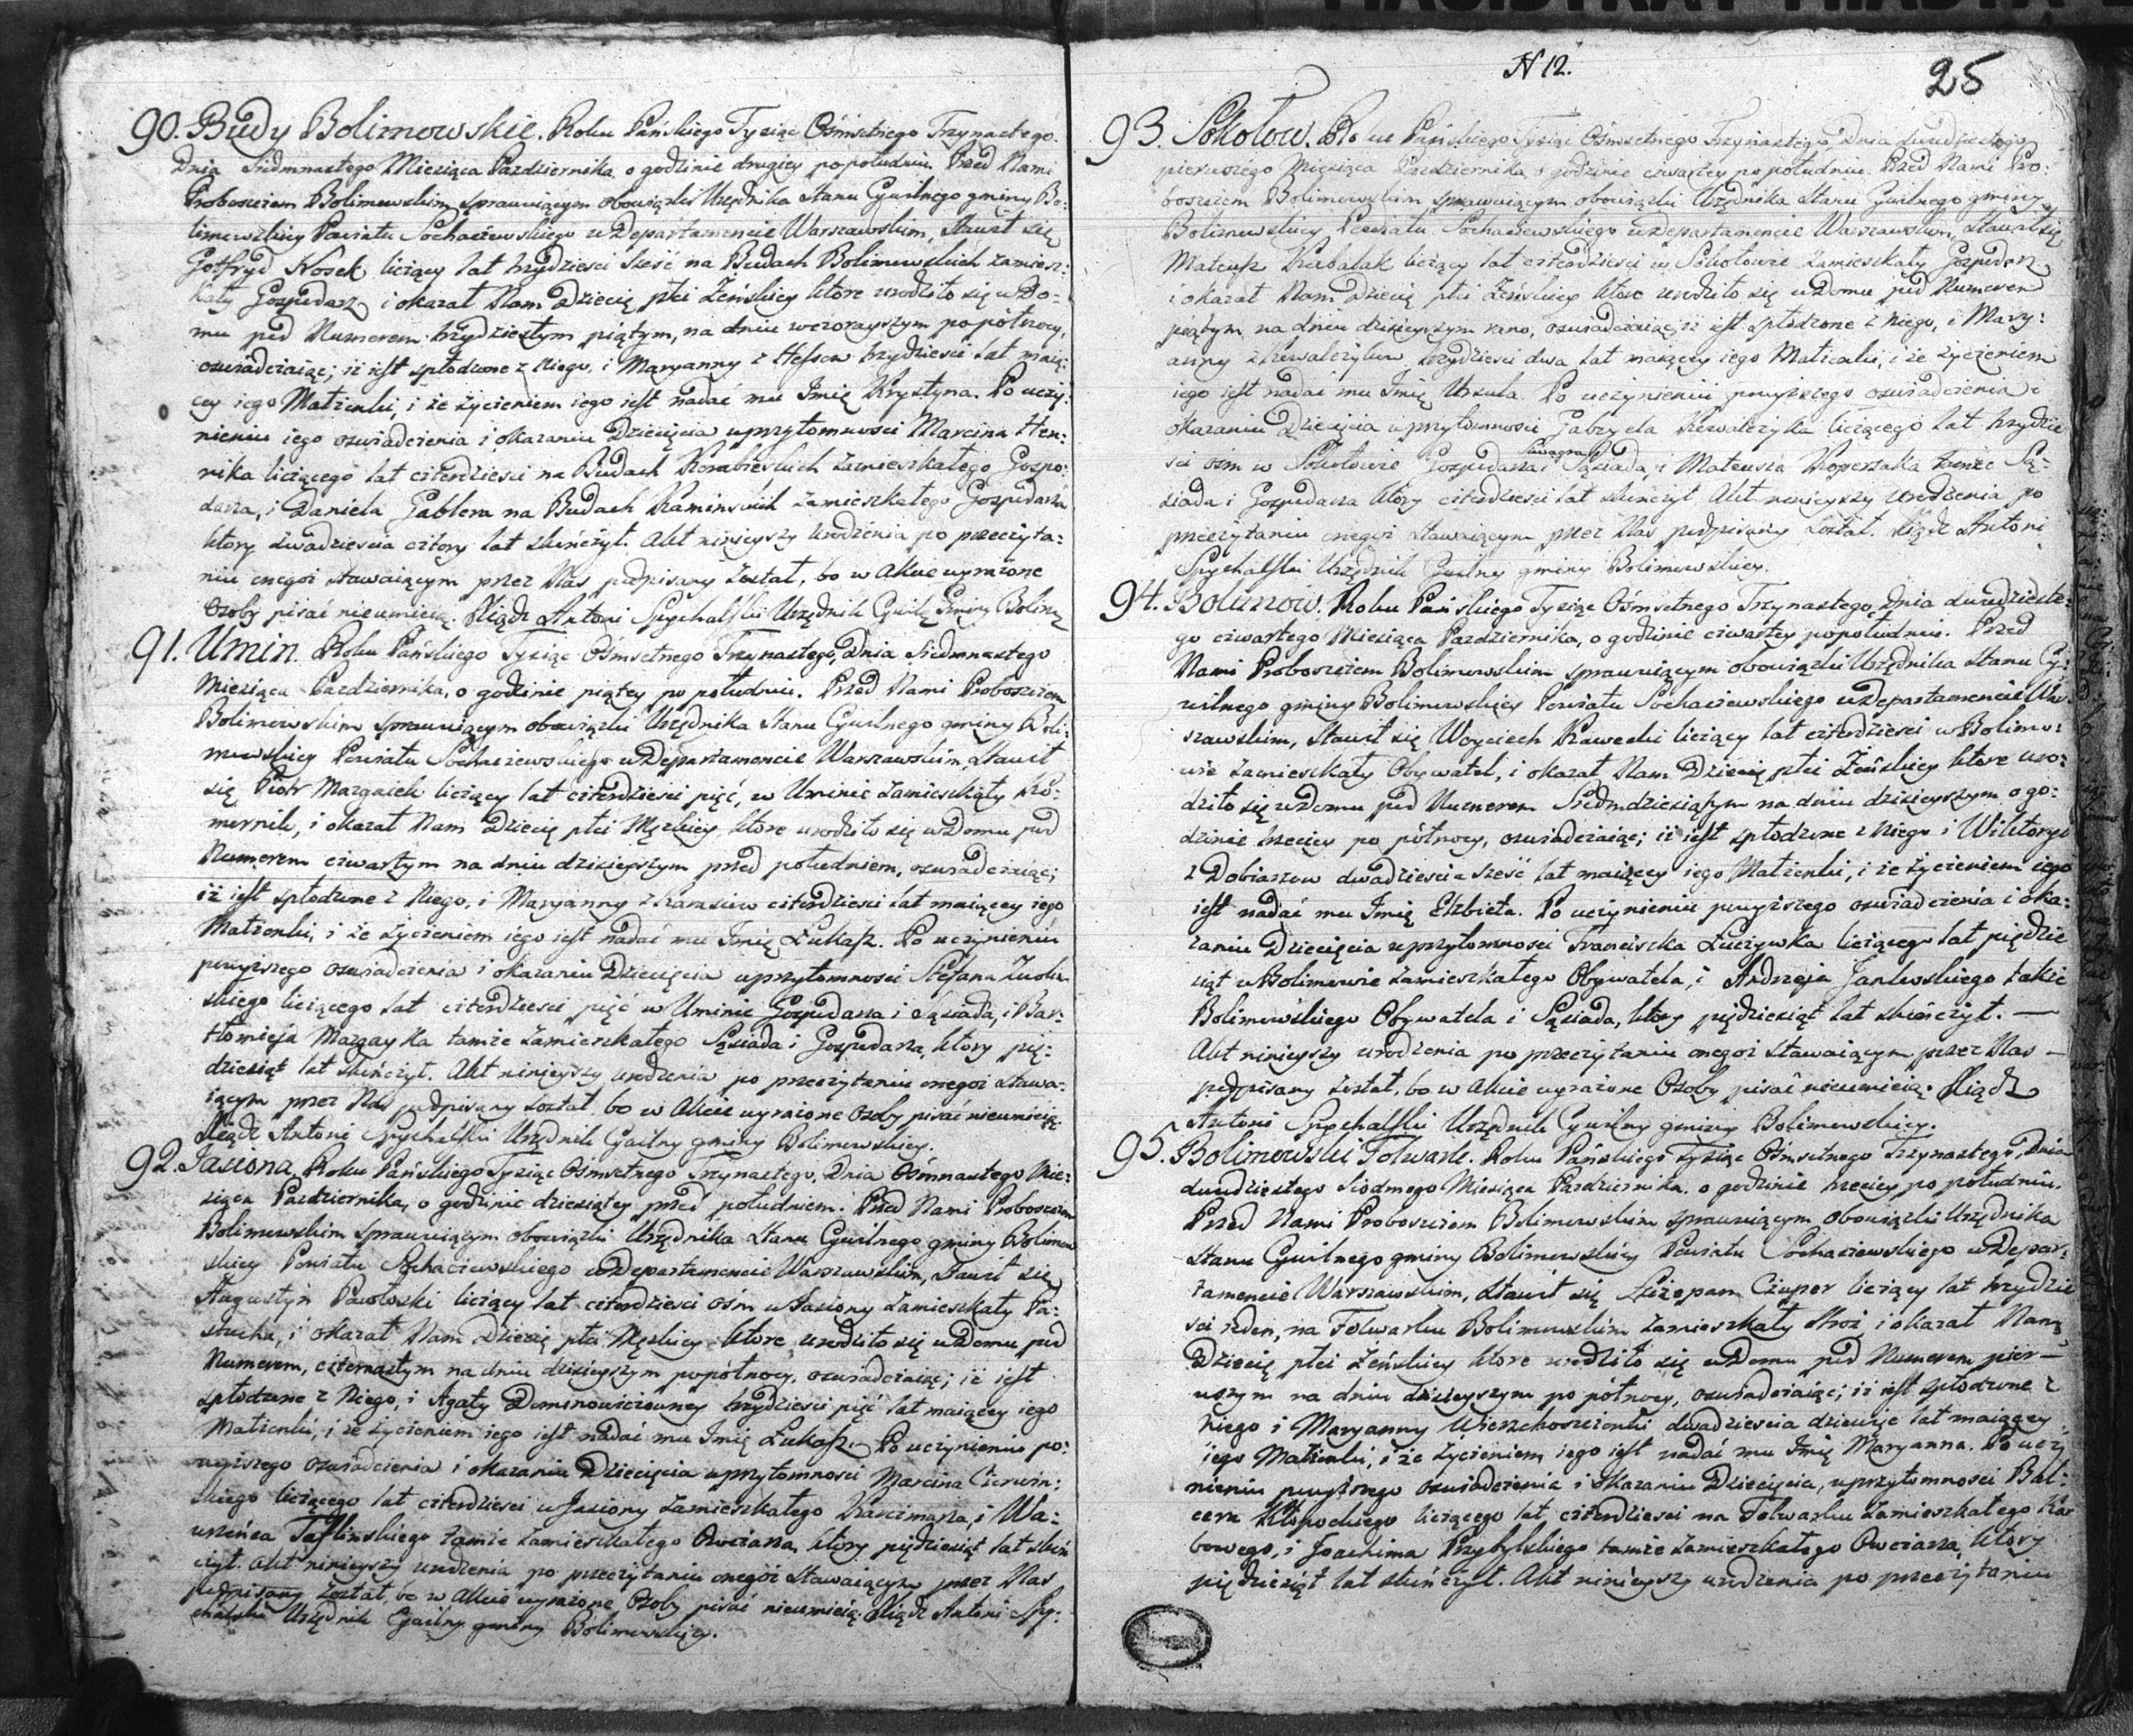 90. Budy Bolimowskie. Roku Pańskiego Tysiąc Ośmsetnego Trzynastego.
Dnia Siedmnastego Miesiąca Pazdziernika o godzinie drugiey popołudniu. Przed Nami
Proboszczem Bolimowskim sprawuiącym obowiązki Urzędnika Stanu Cywilnego gminy Bo:
limowskiey Powiatu Sochaczewskiego w Departamencie Warszawskim, Stawił się
Gotfryd Nosek liczący lat trzydziesci szesć na Budach Bolimowskich zamiesz:
kały Gospodarz, i okazał Nam Dziecię płci Żeńskiey ktore urodziło się w Do:
mu pod Numerem trzydziestym piątym, na dniu wczorayszym popołnocy,
oswiadczaiąc; iż iest spłodzone z Niego, i Maryanny z Hessow trzydziesci lat maią:
cey iego Małżonki, i że życzeniem iego iest nadać mu Imię Krystyna. Po uczy:
nieniu iego oswiadczenia i okazaniu Dziecięcia w przytomnosci Marcina Hen:
rika liczącego lat czterdziesci na Budach zamieszkałego Gospo:
darza, i Daniela Gablera na Budach Kaminskich zamieszkałego Gospodarza
ktory dwadziescia cztory lat skończył. Akt ninieyszy Urodzenia po przeczyta:
niu onegoż stawaiącym przez Nas podpisany został, bo w Akcie wyrażone
Osoby pisać nieumieią. Xiądz Antoni Spychalski Urzędnik Cywil. Gminy Bolim.
91. Umin. Roku Pańskiego Tysiąc Ośmsetnego Trzynastego, Dnia Siedmnastego
Miesiąca Pazdziernika, o godzinie piątey po południu. Przed Nami Proboszczem
Bolimowskim sprawuiącym obowiązki Urzędnika Stanu Cywilnego gminy Boli:
mowskiey Powiatu Sochaczewskiego w Departamencie Warszawskim, Stawił
się Piotr Margaiek liczący lat czterdziesci pięć, w Uminie zamieszkały Ko:
mornik, i okazał Nam Dziecię płci Męzkiey, ktore urodziło się w Domu pod
Numerem czwartym na dniu dzisieyszym przed południem, oswiadczaiąc;
iż iest spłodzone z Niego, i Maryanny z czterdziesci lat maiącey iego
Małżonki, i że życzeniem iego iest nadać mu Imię Łukasz. Po uczynieniu
powyższego oswiadczenia i okazaniu Dziecięcia w przytomnosci Stefana
skiego liczącego lat czterdziesci pięć w Uminie Gospodarza i Sąsiada, i Bar:
tłomieja Margayka tamże zamieszkałego Sąsiada i Gospodarza, ktory pię:
dziesiąt lat skończył. Akt ninieyszy urodzenia po przeczytaniu onegoż stawa:
iącym przez Nas podpisany został, bo w Akcie wyrażone Osoby pisać nieumieią.
Xiądz Antoni Spychalski Urzędnik Cywilny gminy Bolimowskiey.
92. Jasiona. Roku Pańskiego Tysiąc Ośmsetnego Trzynastego, Dnia Osmnastego Mie:
siąca Pazdziernika, o godzinie dziesiątey przed południem. Przed Nami Proboszczem
Bolimowskim sprawuiącym obowiązki Urzędnika Stanu Cywilnego gminy Bolimow
skiey Powiatu Sochaczewskiego w Departamencie Warszawskim, Stawił się
Augustyn Pawłoski liczący lat czterdziesci ośm w Jasiony zamieszkały Pa:
stucha, i okazał Nam Dziecię płci Męzkiey ktore urodziło się w Domu pod
Numerem, czternastym na dniu dzisieyszym popołnocy, oswiadczaiąc; iż iest
spłodzone z Niego, i Agaty trzydziesci pięć lat maiącey iego
Małżonki, i że życzeniem iego iest nadać mu Imię Łukasz. Po uczynieniu po:
wyższego oswiadczenia i okazaniu Dziecięcia w przytomnosci Marcina Czerwin:
skiego liczącego lat czterdziesci w Jasiony zamieszkałego Karczmarza, i Wa:
wrzeńca Taflinskiego tamże zamieszkałego Owczarza, ktory piędziesiąt lat skoń
czył. Akt ninieyszy urodzenia po przeczytaniu onegoż stawaiącym przez Nas
podpisany został, bo w Akcie wyrażone Osoby pisać nieumieią. Xiądz Antoni Spy:
chalski Urzędnik Cywilny gminy Bolimowskiey.
N 12.
25
93. Sokołow. Roku Pańskiego Tysiąc Ośmsetnego Trzynastego, Dnia dwudziestego
pierwszego Miesiąca Pazdziernika, o godzinie czwartey po południu. Przed Nami Pro:
boszczem Bolimowskim sprawuiącym obowiązki Urzędnika Stanu Cywilnego gminy
Bolimowskiey Powiatu Sochaczewskiego w Departamencie Warszawskim, Stawił się
Mateusz liczący lat czterdziesci w Sokołowie zamieszkały Gospodarz,
i okazał Nam Dziecię płci Żeńskiey ktore urodziło się w Domu pod Numerem
piątym na dniu dzisieyszym rano, oswiadczaiąc; iż iest spłodzone z Niego, i Mary:
anny z Kowalczykow trzydziesci dwa lat maiącey iego Małżonki, i że życzeniem
iego iest nadać mu Imię Urszula. Po uczynieniu powyższego oswiadczenia i
okazaniu Dziecięcia w przytomnosci Gabryela Kowalczyka liczącego lat trzydzie
sci osm w Sokołowie Gospodarza i Szwagra Sąsiada, i Mateusza Koperzaka tamże Są:
siada i Gospodarza ktory czterdziesci lat skończył. Akt ninieyszy Urodzenia po
przeczytaniu onegoż stawaiącym przez Nas podpisany został. Xiądz Antoni
Spychalski Urzędnik Cywilny gminy Bolimowskiey.
94. Bolimow. Roku Pańskiego Tysiąc Ośmsetnego Trzynastego, Dnia dwudzieste:
go czwartego Miesiąca Pazdziernika, o godzinie czwartey popołudniu. Przed
Nami Proboszczem Bolimowskim sprawuiącym obowiązki Urzędnika Stanu Cy:
wilnego gminy Bolimowskiey Powiatu Sochaczewskiego w Departamencie War:
szawskim, Stawił się Woyciech Rawecki liczący lat czterdziesci w Bolimo:
wie zamieszkały Obywatel, i okazał Nam Dziecię płci Żeńskiey ktore uro:
dziło się w Domu pod Numerem Siedmdziesiątym na dniu dzisieyszym o go:
dzinie trzeciey po połnocy, oswiadczaiąc; iż iest spłodzone z Niego i Wiktoryi
z Dobiaszow dwadziescia szesć lat maiącey iego Małżonki, i że życzeniem iego
iest nadać mu Imię Elzbieta. Po uczynieniu powyższego oswiadczenia i oka:
zaniu Dziecięcia w przytomnosci Franciszka liczącego lat pięćdzie
siąt w Bolimowie zamieszkałego Obywatela, i Andrzeja Jankowskiego takze
Bolimowskiego Obywatela i Sąsiada, ktory piędziesiąt lat skończył. —
Akt ninieyszy urodzenia po przeczytaniu onegoż stawaiącym przez Nas —
podpisany został, bo w Akcie wyrażone Osoby pisać nieumieią. Xiądz
Antoni Spychalski Urzędnik Cywilny gminy Bolimowskiey.
95. Bolimowski Folwark. Roku Pańskiego Tysiąc Ośmsetnego Trzynastego, Dnia
dwudziestego Siodmego Miesiąca Pazdziernika, o godzinie trzeciey po południu.
Przed Nami Proboszczem Bolimowskim sprawuiącym obowiązki Urzędnika
Stanu Cywilnego gminy Bolimowskiey Powiatu Sochaczewskiego w Depar:
tamencie Warszawskim, Stawił się Szczepan Czuper liczący lat trzydzie
sci ieden, na Folwarku Bolimowskim zamieszkały Stroż i okazał Nam
Dziecię płci Żeńskiey ktore urodziło się w Domu pod Numerem pier—
wszym na dniu dzisieyszym po połnocy, oswiadczaiąc; iż iest spłodzone z
Niego i Maryanny dwadziescia dziewięć lat maiącey
iego Małżonki, i że życzeniem iego iest nadać mu Imię Maryanna. Po uczy
nieniu powyższego oswiadczenia i okazaniu Dziecięcia, w przytomnosci Bal:
cera Kłopockiego liczącego lat czterdziesci na Folwarku zamieszkałego Kar
bowego, i Joachima Przybylskiego tamże zamieszkałego Owczarza, ktory
pięćdziesiąt lat skończył. Akt ninieyszy urodzenia po przeczytaniu